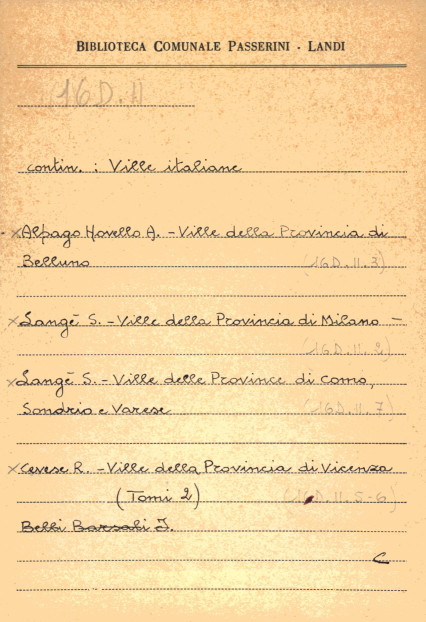 BIBLIOTECA COMUNALE PASSERINI - LANDI
16D.II
contin. : Ville italiane
x Alpago Novello A. - Ville della Provincia di
Belluno (16D.II.3)
x Langè S. - Ville della Provincia di Milano -
(16D.II.2)
x Langè S. - Ville delle Province di Como,
Sondrio e Varese (16D.II.7)
x Cevese R. - Ville della Provincia di Vicenza
(Tomi 2) (16D.II.5-6)
Belli Barsali I.
C